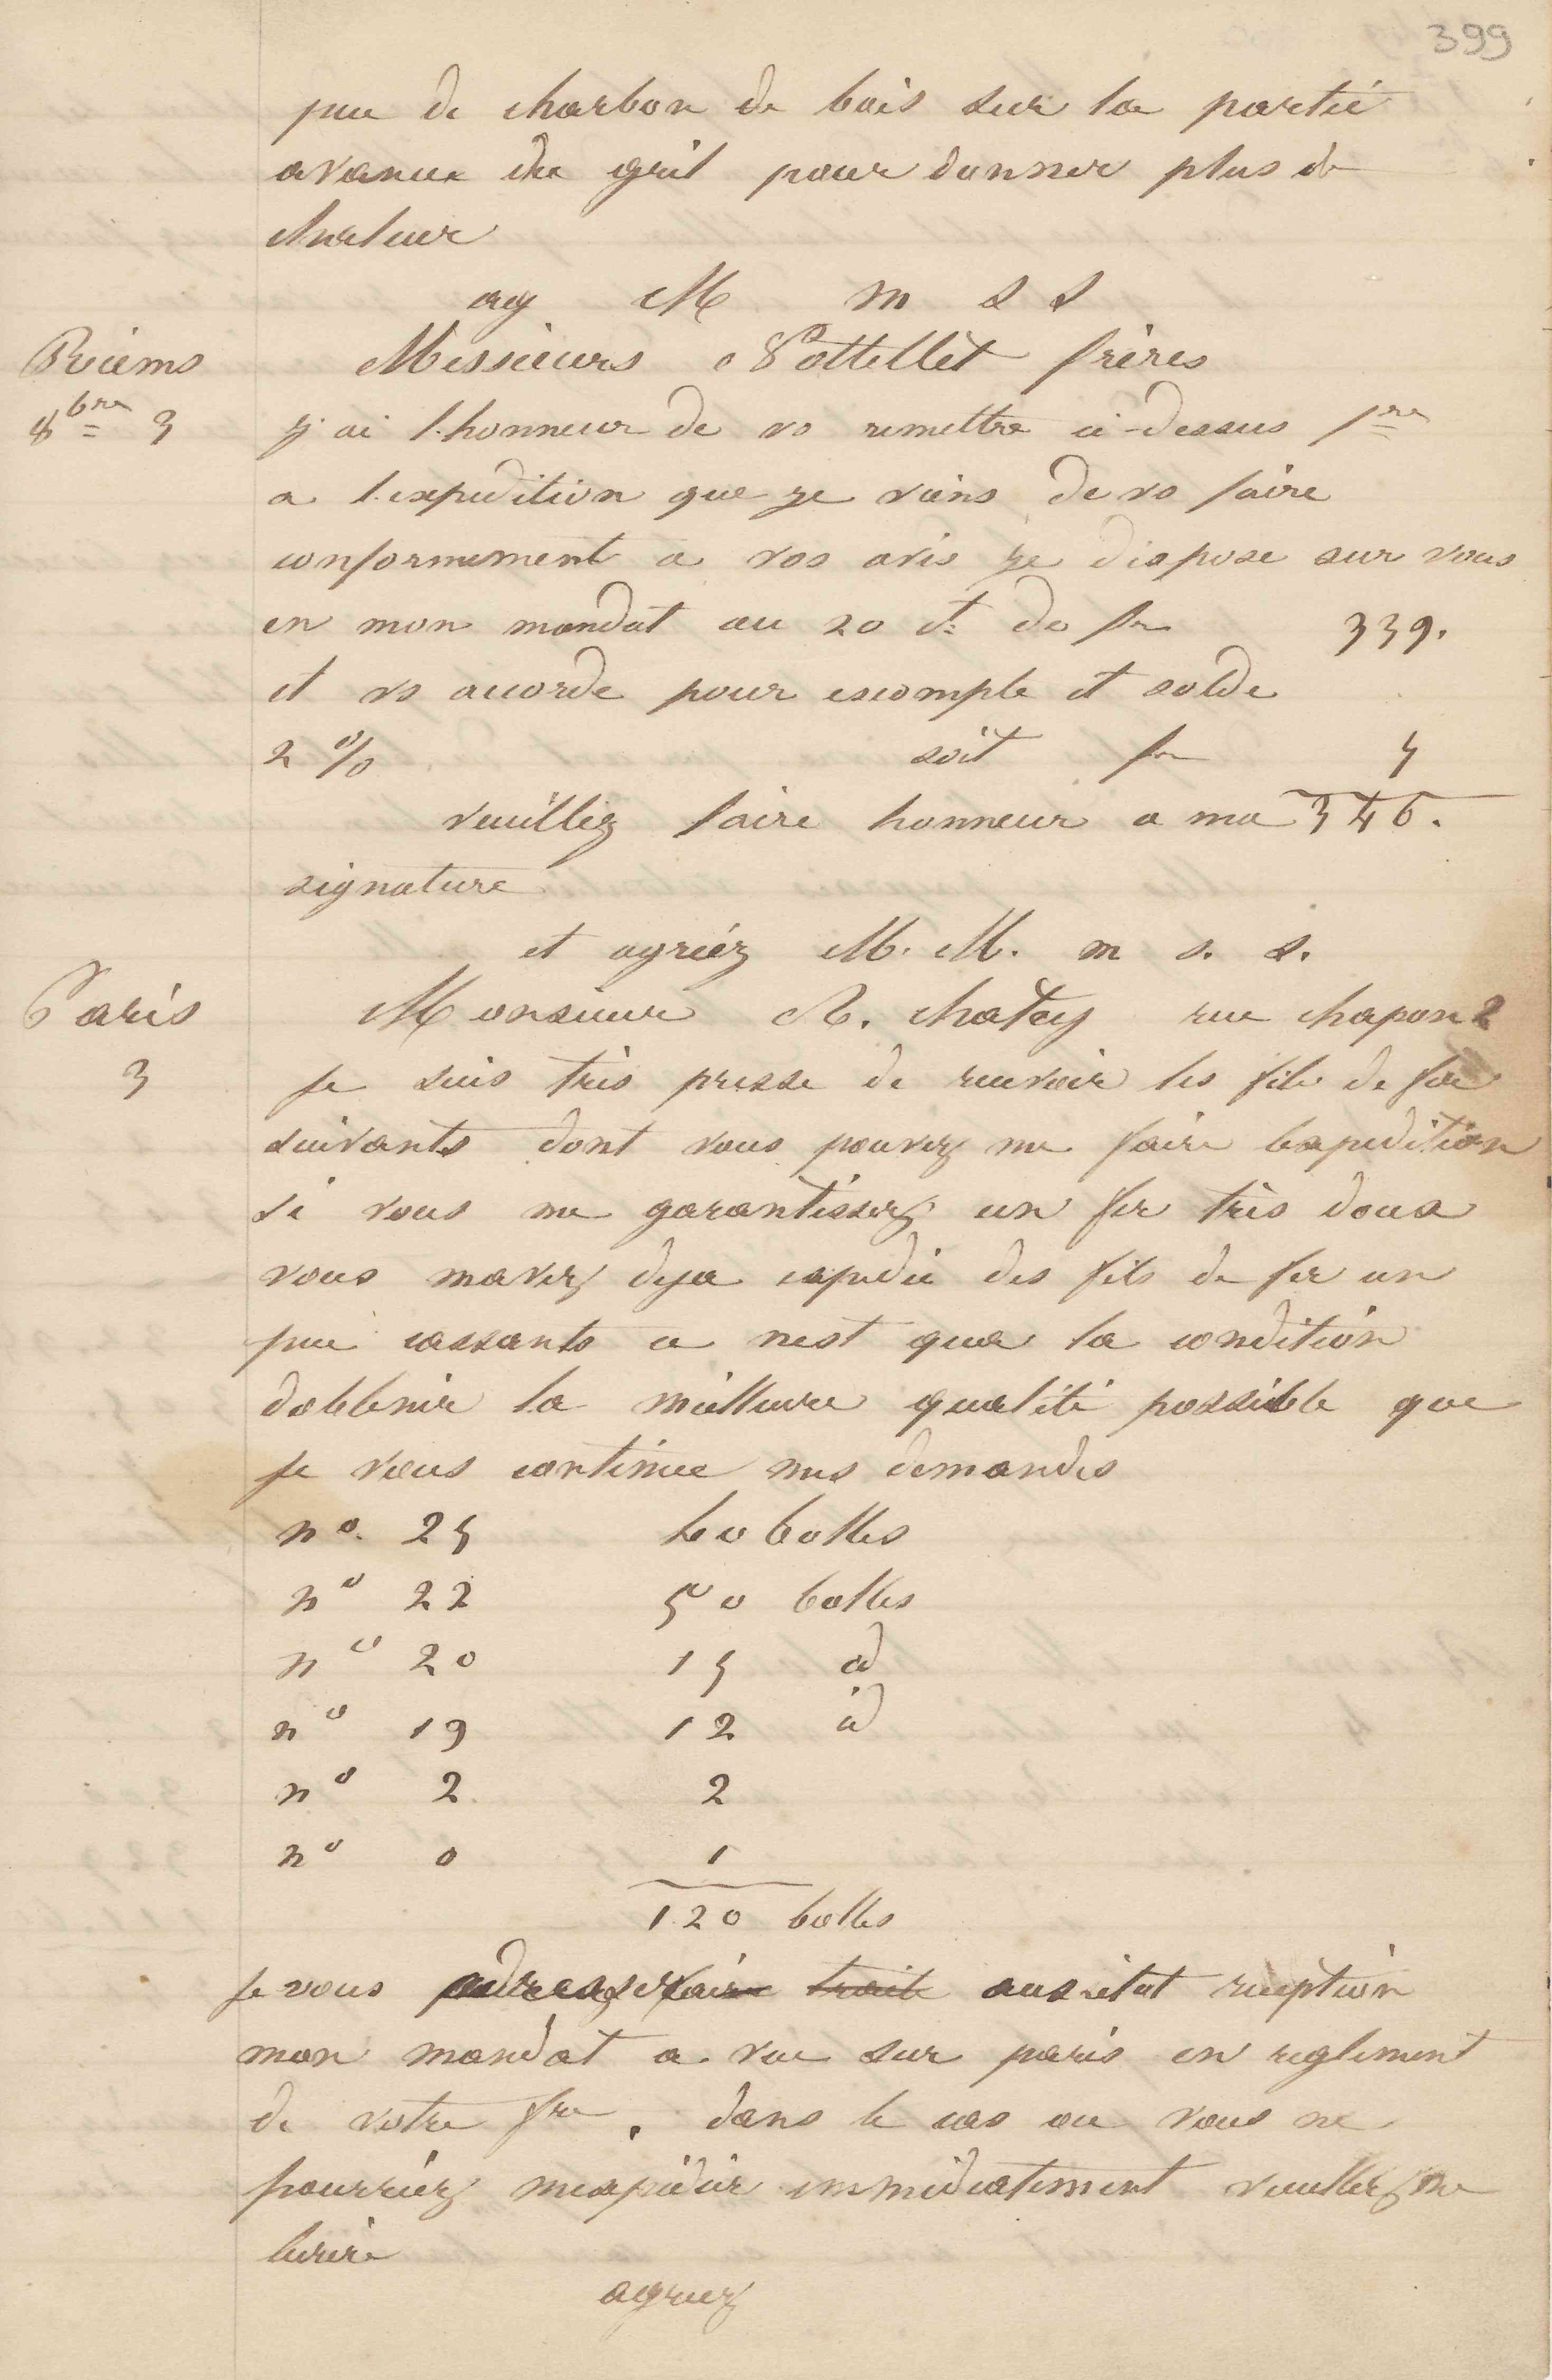 399
peu de charbon de bois sur la partie
avancee du gril pour donner plus de
chaleur
ag M m s s
Reims Messieurs Pottellet frères
8bre 3 j'ai l'honneur de vs remettre ci-dessus fre
a l'expedition que je viens de vs faire
conformement a vos avis je dispose sur vous
en mon mandat au 20 ct de fr 339.
et vs accorde pour escompte et solde
2 % soit fr 7
veuillez faire honneur a ma 346.
signature
et agréez M. M. m s. s.
Paris Monsieur A. chatey rue chapon 2
3 Je suis très pressé de recevoir les fils de fer
suivants dont vous pouvez me faire lexpedition
si vous me garantissez un fer très doux
vous mavez deja expedié des fils de fer un
peu cassants ce nest qua la condition
dobtenir la meilleure qualité possible que
je vous continue mes demandes
no. 25 40 bottes
no 22 50 bottes
no 20 15 d
no 19 12 d
no 2 2
no 0 1
120 bottes
Je vous adresserai traite aussitot reception
mon mandat a vue sur paris en reglement
de votre fre. dans le cas ou vous ne
pourriez mexpédier immédiatement veuillez me
lecrire
agreez